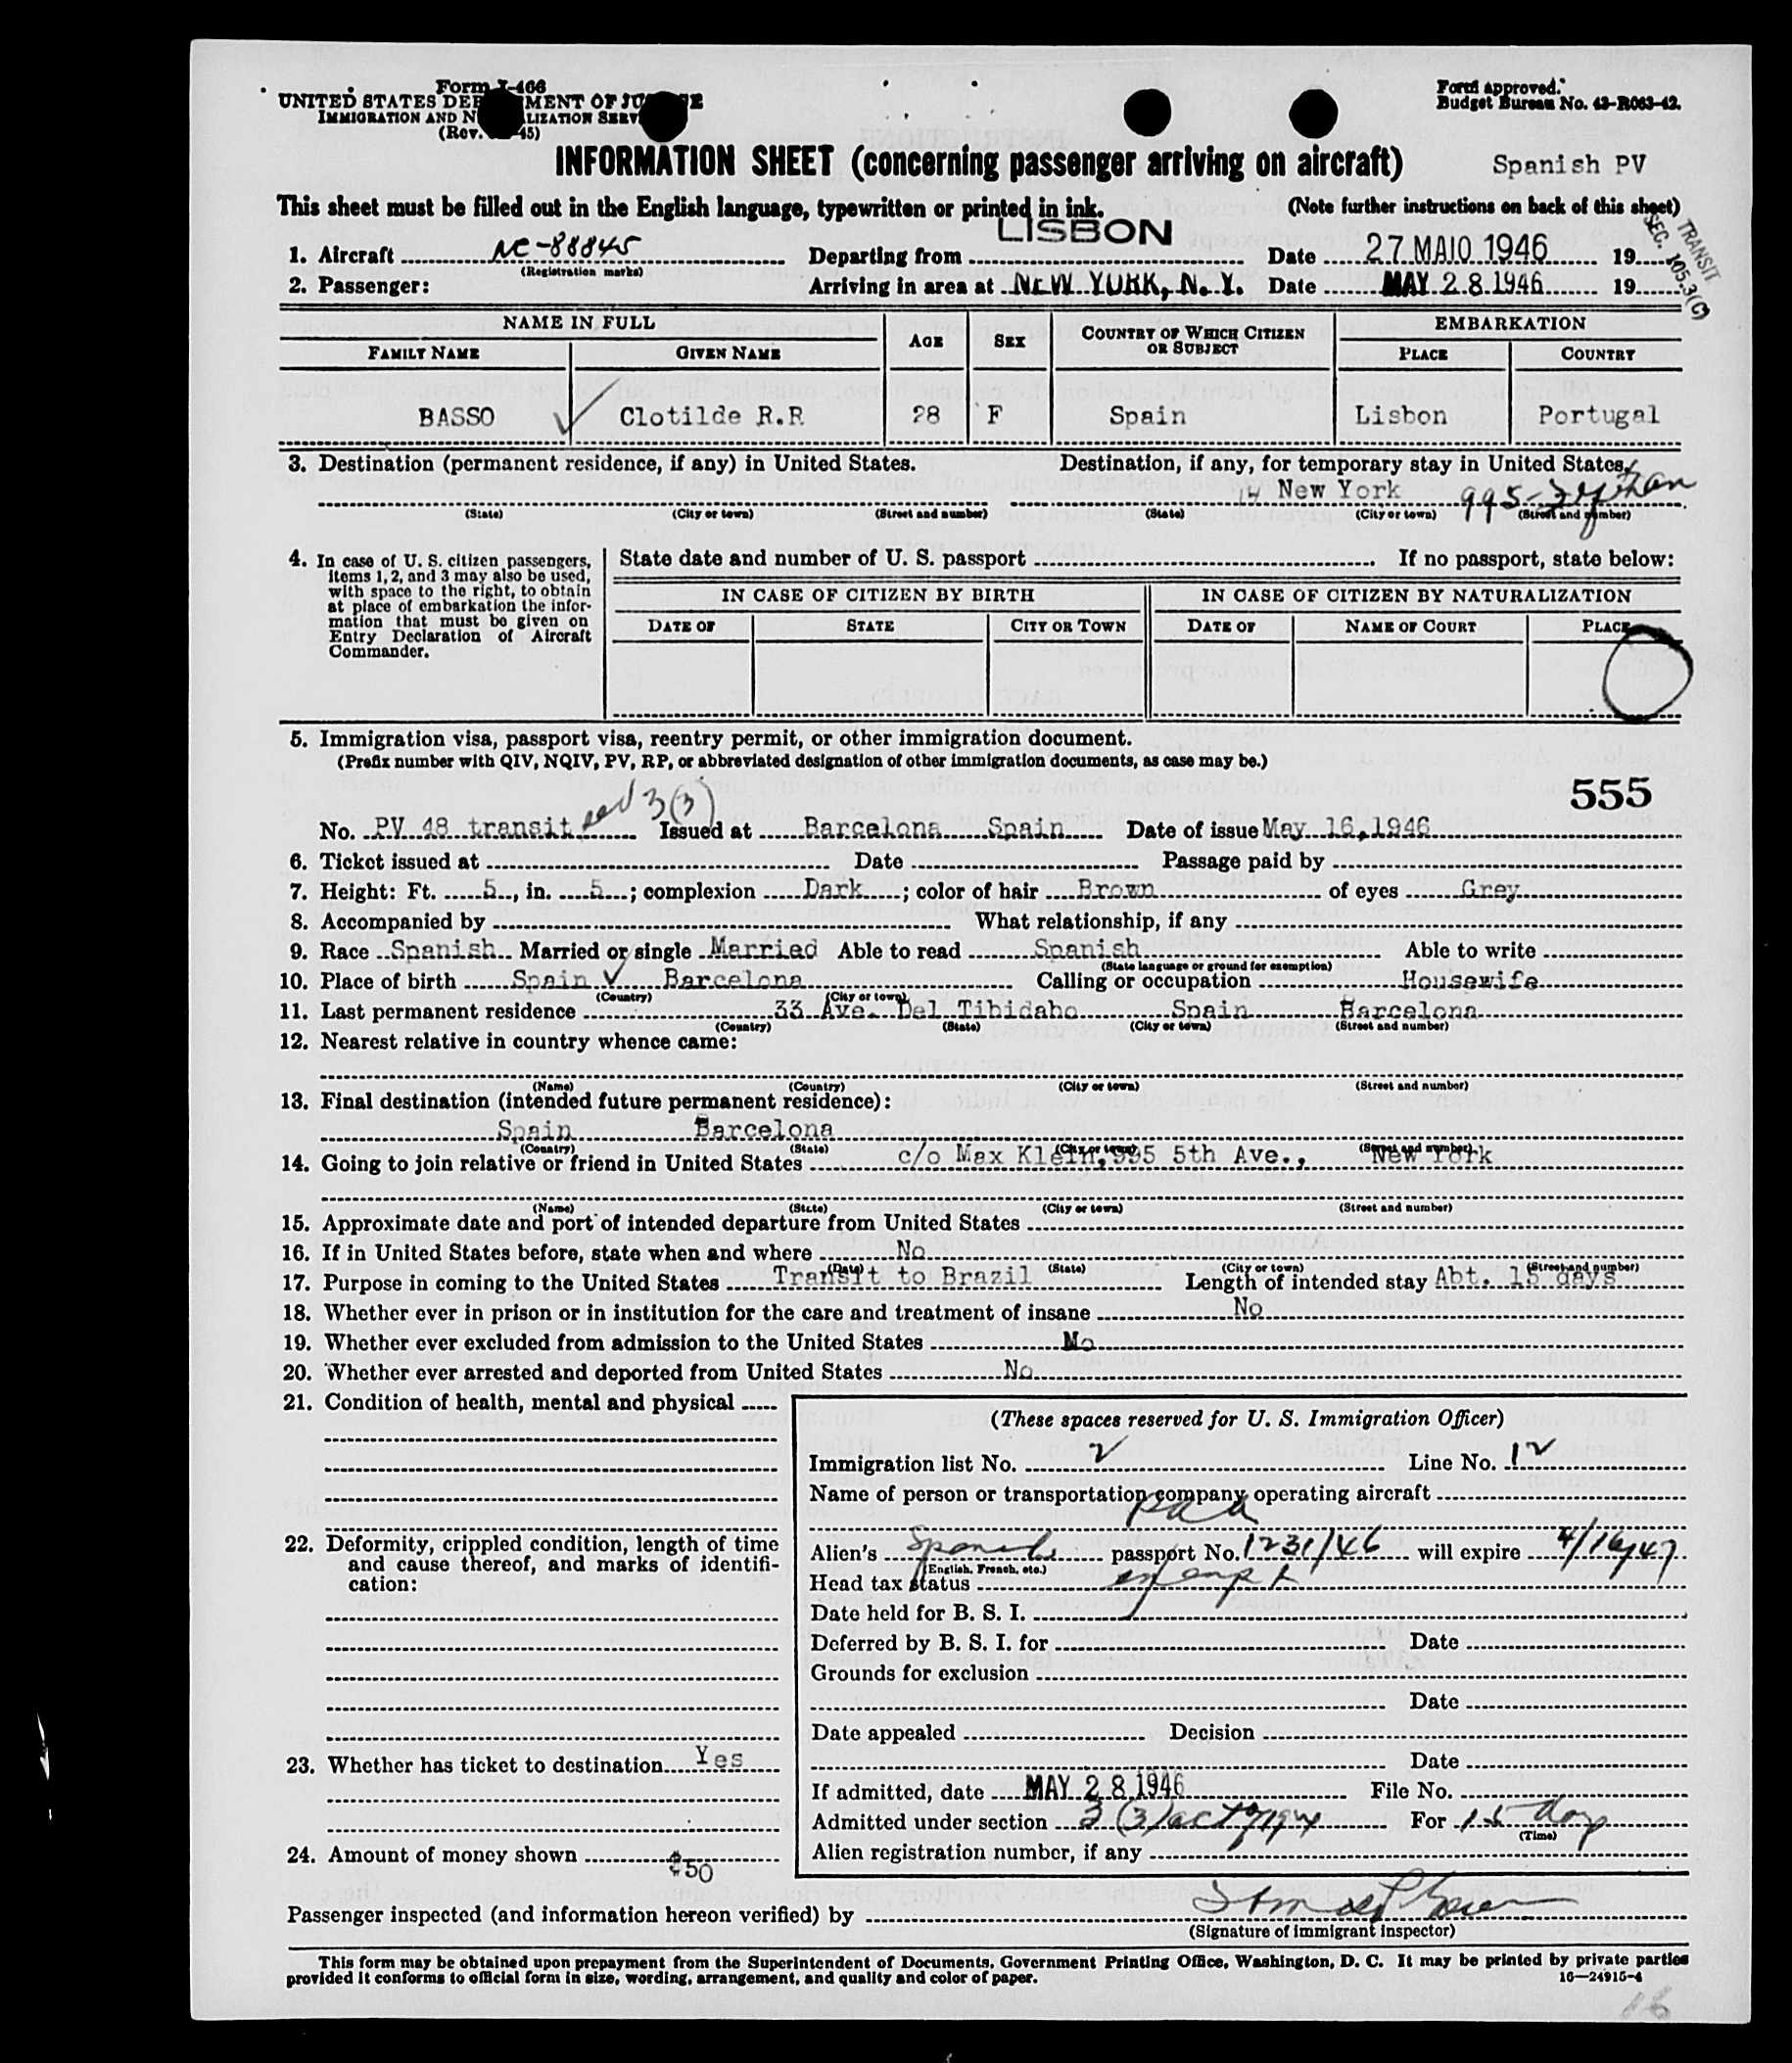 Form I-466
UNITED STATES DEPARTMENT OF JUSTICE
IMMIGRATION AND NATURALIZATION SERVICE
(Rev. 45)
Form approved.
Budget Bureau No. 43-R063-42.
INFORMATION SHEET (concerning passenger arriving on aircraft)
Spanish PV
This sheet must be filled out in the English language, typewritten or printed in ink. (Note further instructions on back of this sheet)
TRANSIT
SEC. 105.3(C)
1. Aircraft NC-88845 Departing from LISBON Date 27 MAIO 1946 19
(Registration marks)
2. Passenger: Arriving in area at NEW YORK, N. Y. Date MAY 28 1946 19
NAME IN FULL AGE SEX COUNTRY OF WHICH CITIZEN OR SUBJECT EMBARKATION
FAMILY NAME GIVEN NAME PLACE COUNTRY
BASSO Clotilde R.R 28 F Spain Lisbon Portugal
3. Destination (permanent residence, if any) in United States. Destination, if any, for temporary stay in United States.
New York 995-
(State) (City or town) (Street and number) (State) (City or town) (Street and number)
4. In case of U. S. citizen passengers, items 1, 2, and 3 may also be used, with space to the right, to obtain at place of embarkation the information that must be given on Entry Declaration of Aircraft Commander.
State date and number of U. S. passport If no passport, state below:
IN CASE OF CITIZEN BY BIRTH IN CASE OF CITIZEN BY NATURALIZATION
DATE OF STATE CITY OR TOWN DATE OF NAME OF COURT PLACE
5. Immigration visa, passport visa, reentry permit, or other immigration document.
(Prefix number with QIV, NQIV, PV, RP, or abbreviated designation of other immigration documents, as case may be.)
555
No. PV 48 transit 3(3) Issued at Barcelona Spain Date of issue May 16,1946
6. Ticket issued at Date Passage paid by
7. Height: Ft. 5, in. 5; complexion Dark; color of hair Brown of eyes Grey
8. Accompanied by What relationship, if any
9. Race Spanish Married or single Married Able to read Spanish Able to write
(State language or ground for exemption)
10. Place of birth Spain Barcelona Calling or occupation Housewife
(Country) (City or town)
11. Last permanent residence 33 Ave. Del Tibidabo Spain Barcelona
(Country) (State) (City or town) (Street and number)
12. Nearest relative in country whence came:
(Name) (Country) (City or town) (Street and number)
13. Final destination (intended future permanent residence):
Spain Barcelona
(Country) (State) (City or town) (Street and number)
14. Going to join relative or friend in United States c/o Max Klein, 995 5th Ave., New York
(Name) (State) (City or town) (Street and number)
15. Approximate date and port of intended departure from United States
16. If in United States before, state when and where No
(Date) (State) (City or town) (Street and number)
17. Purpose in coming to the United States Transit to Brazil Length of intended stay Abt. 15 days
18. Whether ever in prison or in institution for the care and treatment of insane No
19. Whether ever excluded from admission to the United States No
20. Whether ever arrested and deported from United States No
21. Condition of health, mental and physical
22. Deformity, crippled condition, length of time and cause thereof, and marks of identification:
23. Whether has ticket to destination Yes
24. Amount of money shown $50
(These spaces reserved for U. S. Immigration Officer)
Immigration list No. 2 Line No. 12
Name of person or transportation company operating aircraft
PAA
Alien's Spanish passport No. 1231/46 will expire 4/16/47
(English, French, etc.)
Head tax status exempt
Date held for B. S. I.
Deferred by B. S. I. for Date
Grounds for exclusion
Date
Date appealed Decision
Date
If admitted, date MAY 28 1946 File No.
Admitted under section 3(3) act of 1924 For 15 days
(Time)
Alien registration number, if any
Passenger inspected (and information hereon verified) by
(Signature of immigrant inspector)
This form may be obtained upon prepayment from the Superintendent of Documents, Government Printing Office, Washington, D. C. It may be printed by private parties
provided it conforms to official form in size, wording, arrangement, and quality and color of paper.
16—24915-4
16